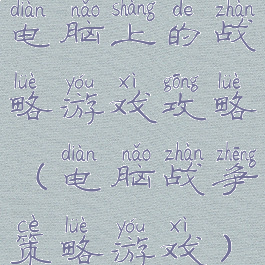 diàn nǎo shàng de zhàn
电脑上的战
lüè yóu xì gōng lüè
略游戏攻略
diàn nǎo zhàn zhēng
（电脑战争
cè lüè yóu xì
策略游戏）